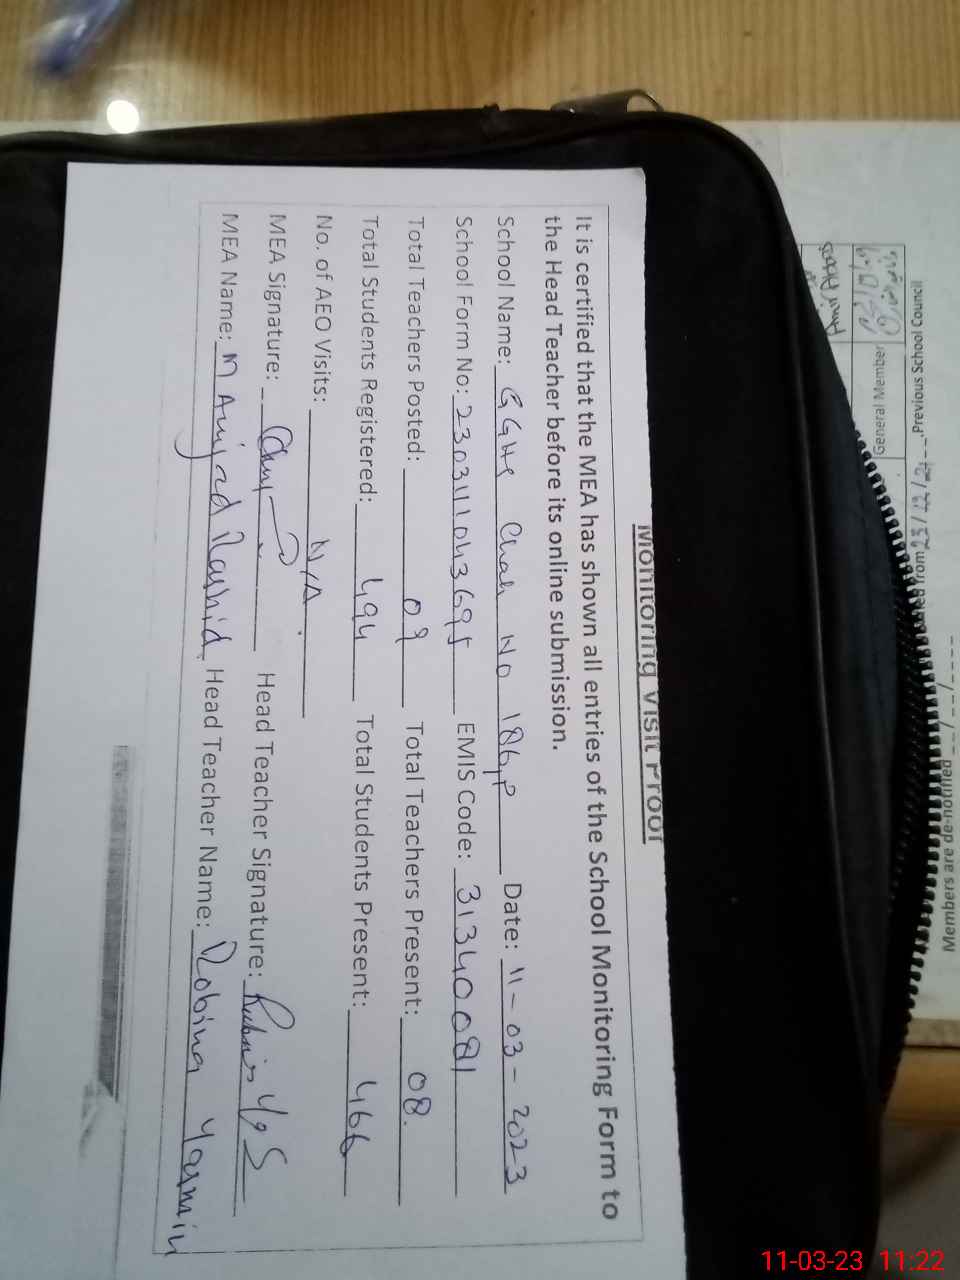 Monitoring Visit Proof
It is certified that the MEA has shown all entries of the School Monitoring Form to
the Head Teacher before its online submission.
School Name: GGHS Chak No 186,P Date: 11-03-2023
School Form No: 230311043695 EMIS Code: 31340081
Total Teachers Posted: 09 Total Teachers Present: 08.
Total Students Registered: 494 Total Students Present: 466
No. of AEO Visits: N/A.
MEA Signature: Head Teacher Signature:
MEA Name: M Amjad Rashid. Head Teacher Name: Robina Yasmin
Previous School Council
General Member
Members are de-notified
11-03-23 11:22